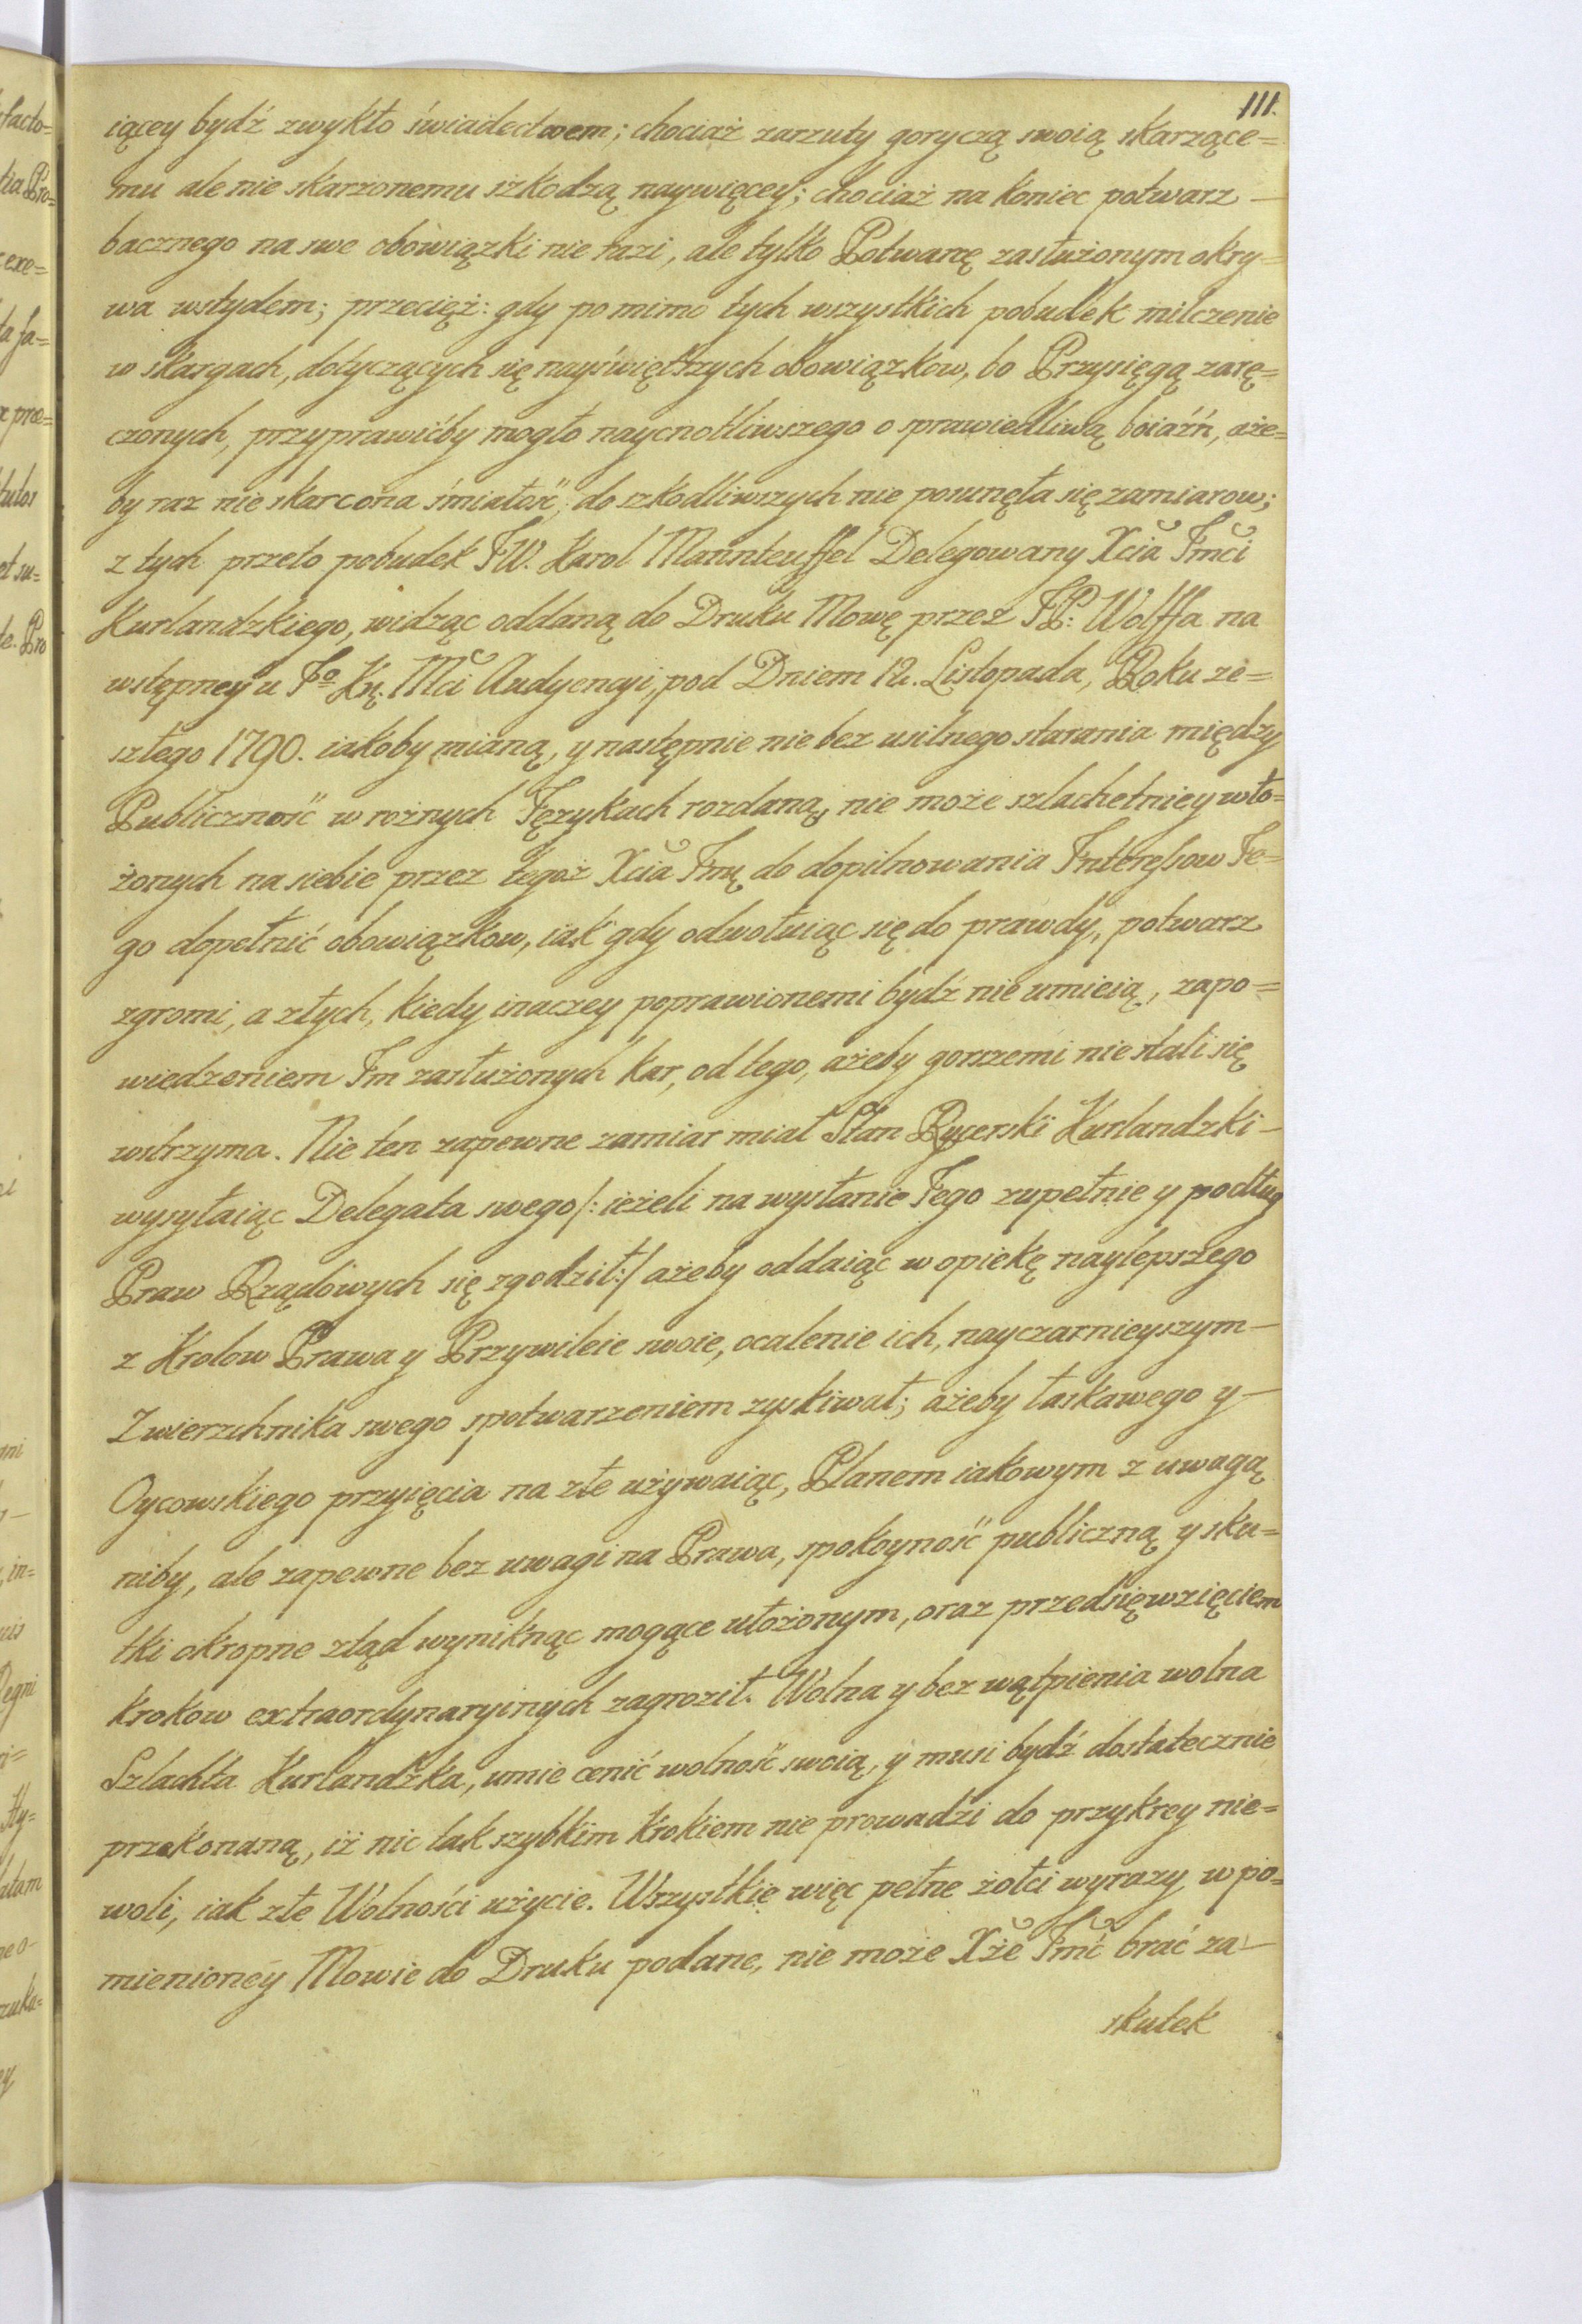 111.
iącey bydź zwykło świadectwem; chociaż zarzuty goryczą swoią skarzące=
mu ale nie skarzonemu szkodzą naywięcey; chociaż na koniec potwarz —
bacznego na swe obowiązki nie razi, ale tylko Potwarcę zasłużonym okry=
wa wstydem; przecięż: gdy pomimo tych wszystkich pobudek milczenie
w skargach, dotyczących się nayświętszych obowiązkow, bo Przysięgą zarę=
czonych, przyprawićby mogło naycnotliwszego o sprawiedliwą boiaźń, aże=
by raz nie skarcona śmiałość, do szkodliwszych nie posunęła się zamiarow;
z tych przeto pobudek JW. Karol Mannteuffel Delegowany Xcia Jmci
Kurlandzkiego, widząc oddaną do Druku Mowę przez JP: Wolffa na
wstępney u Jo Kr. Mci Audyencyi, pod Dniem 12. Listopada, Roku ze=
szłego 1790. iakoby mianą, y następnie nie bez usilnego starania między
Publiczność w rożnych Językach rozdaną, nie może szlachetniey wło=
żonych na siebie przez tegoż Xcia Jmę do dopilnowania Interessow Je=
go dopełnić obowiązkow, iak gdy odwołuiąc się do prawdy, potwarz
zgromi, a złych, kiedy inaczey poprawionemi bydź nie umieią, zapo=
wiedzeniem Im zasłużonych kar, od tego, ażeby gorszemi nie stali się
wstrzyma. Nie ten zapewne zamiar miał Stan Rycerski Kurlandzki —
wysyłaiąc Delegata swego /: ieżeli na wysłanie Jego zupełnie y podług
Praw Rządowych się zgodził :/ ażeby oddaiąc w opiekę naylepszego
z Krolow Prawa y Przywileie swoie, ocalenie ich, nayczarnieyszym —
Zwierzchnika swego spotwarzeniem zyskiwał; ażeby łaskawego y —
Oycowskiego przyięcia na złe używaiąc, Planem iakowym z uwagą
niby, ale zapewne bez uwagi na Prawa, spokoyność publiczną y sku=
tki okropne ztąd wyniknąc mogące ułożonym, oraz przedsięwzięciem
krokow extraordynaryinych zagroził. Wolna y bez wątpienia wolna
Szlachta Kurlandzka, umie cenić wolność swoią, y musi bydź dostatecznie
przekonaną, iż nic tak szybkim krokiem nie prowadzi do przykrey nie=
woli, iak złe Wolności użycie. Wszystkie więc pełne żołci wyrazy w po=
mienioney Mowie do Druku podane, nie może Xże Jmć brać za —
skutek